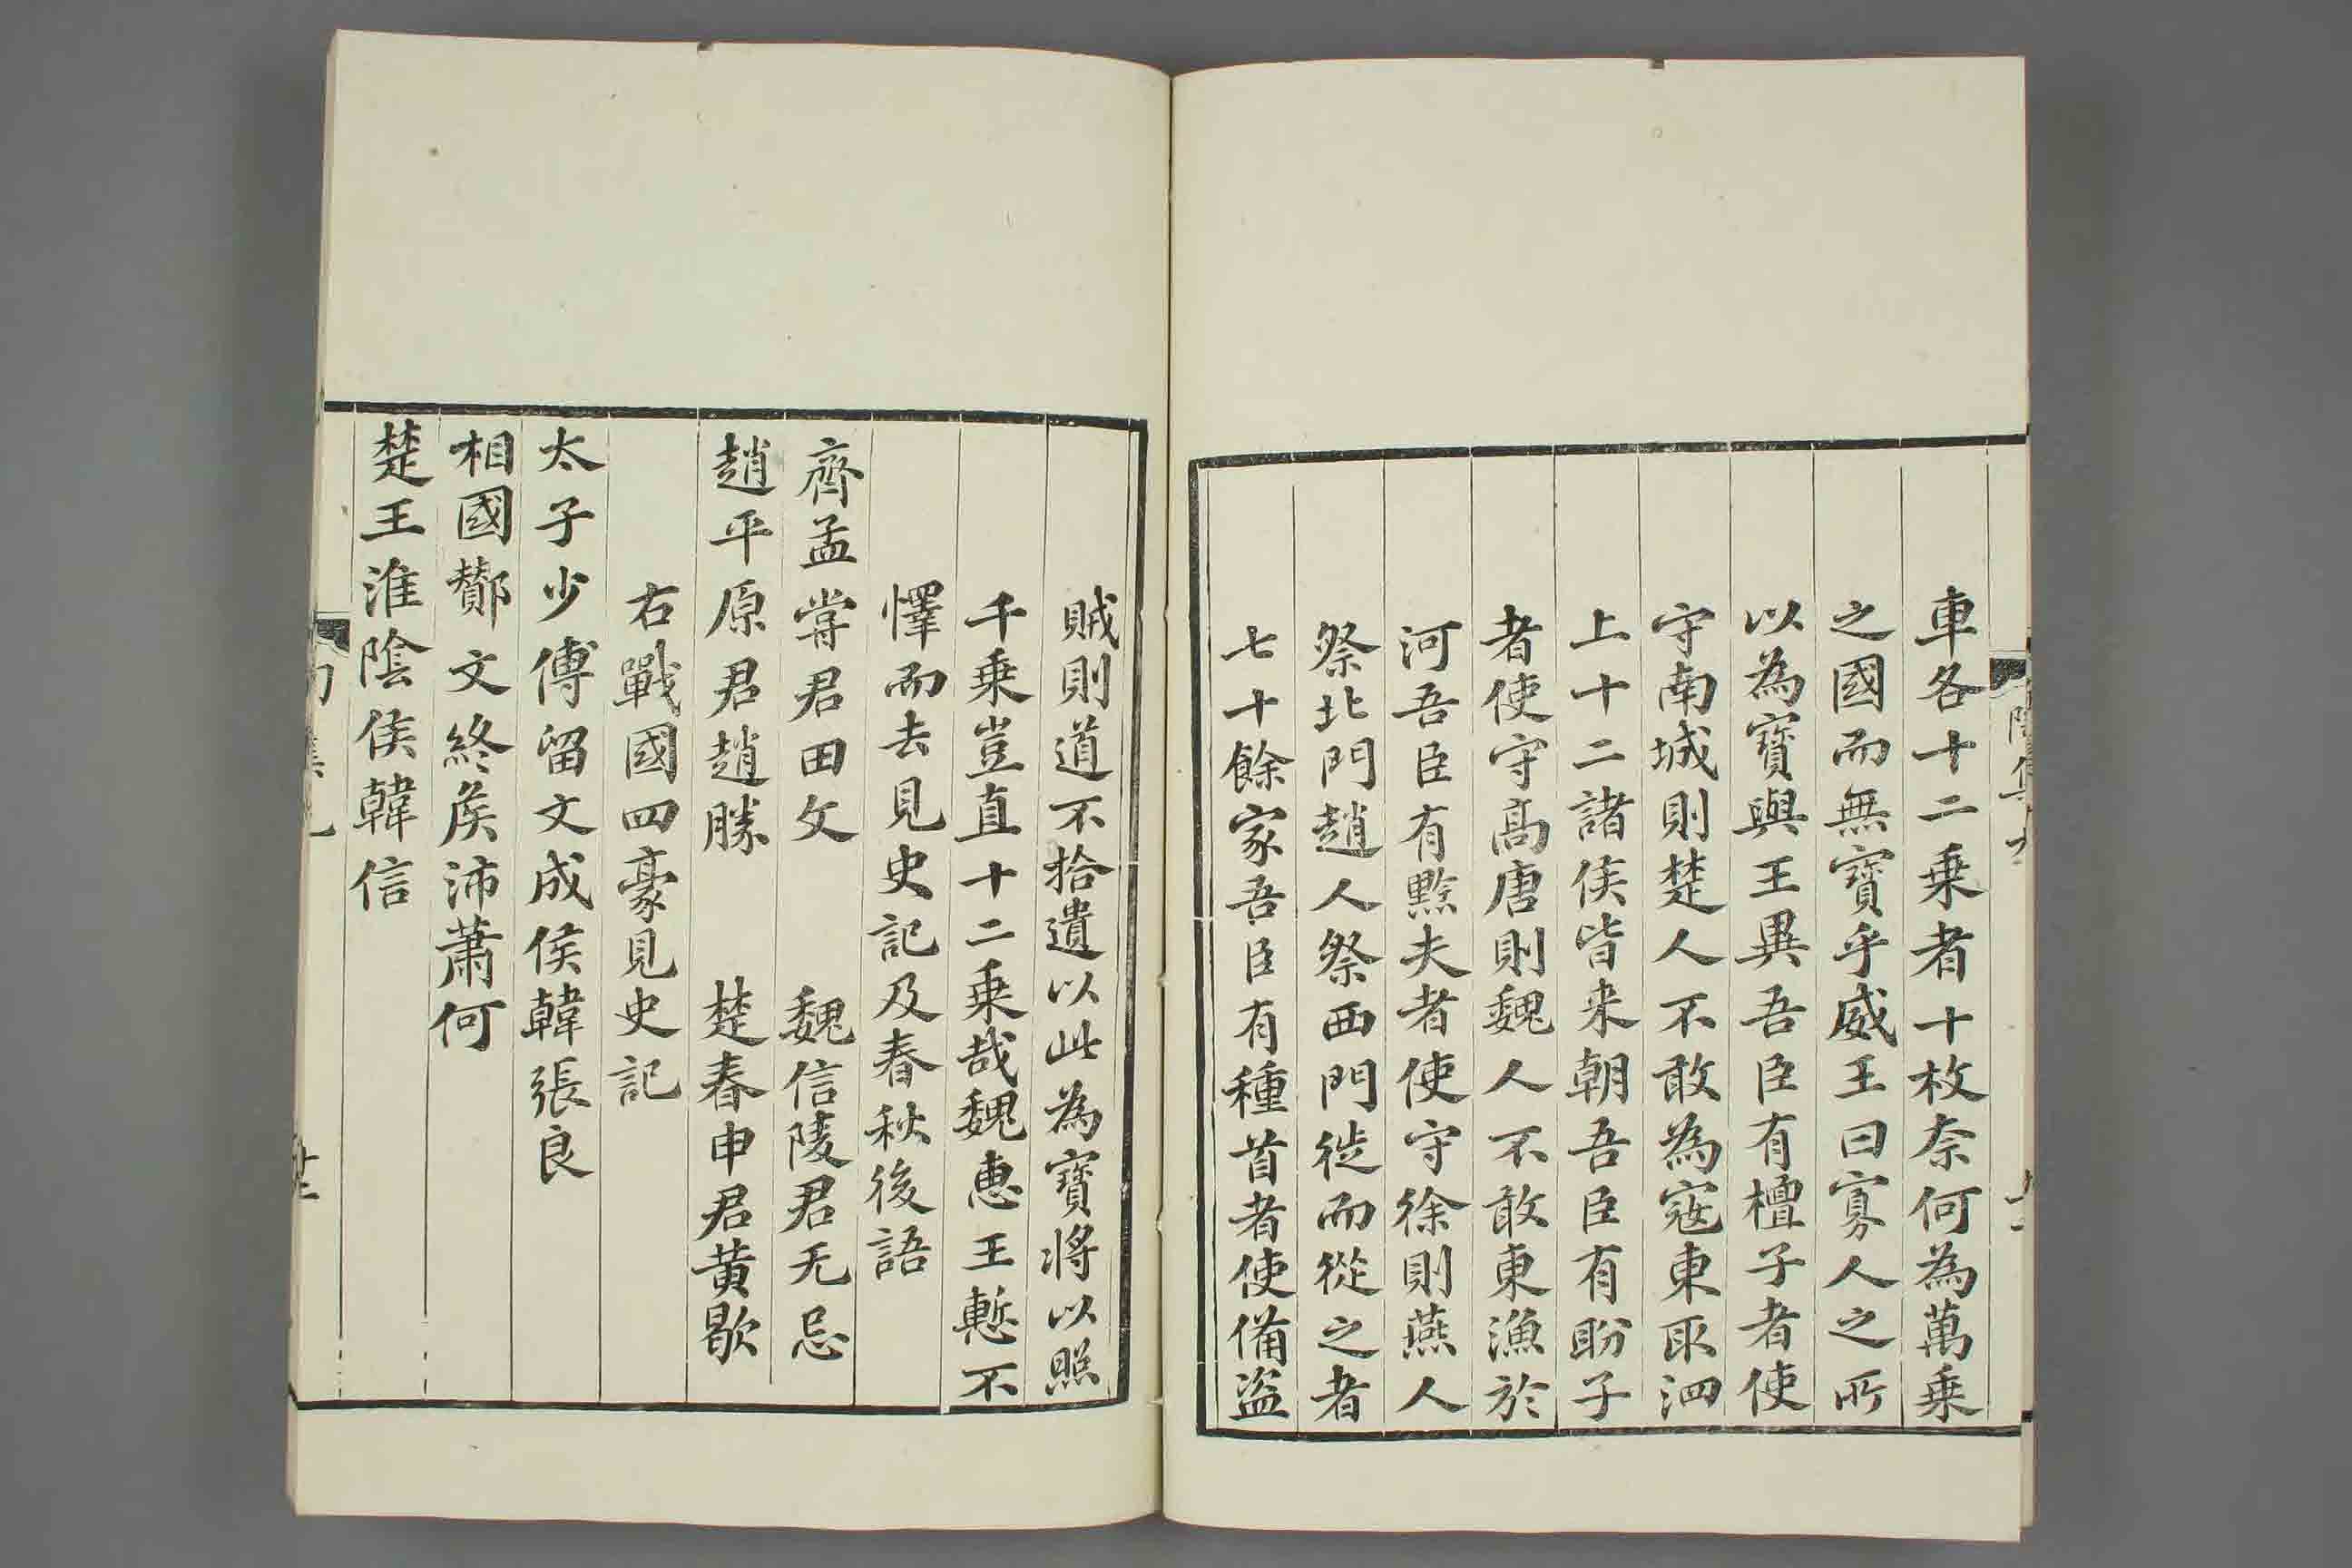 車各十二乗者十枚奈何為萬乗
之國而無寳乎威王曰寡人之所
以為寳與王異吾臣有檀子者使
守南城則楚人不敢為寇東取泗
上十二諸侯皆来朝吾臣有盼子
者使守髙唐則魏人不敢東漁於
河吾臣有黔夫者使守徐則燕人
祭北門趙人祭西門徙而從之者
七十餘家吾臣有種首者使備盗
賊則道不拾遺以此為寳将以照
千乗豈直十二乗哉魏恵王慙不
懌而去見史記及春秋後語
齊孟甞君田文 魏信陵君无忌
趙平原君趙勝 楚春申君黄歇
右戰國四豪見史記
太子少傅留文成侯韓張良
相國酇文終侯沛蕭何
楚王淮陰侯韓信